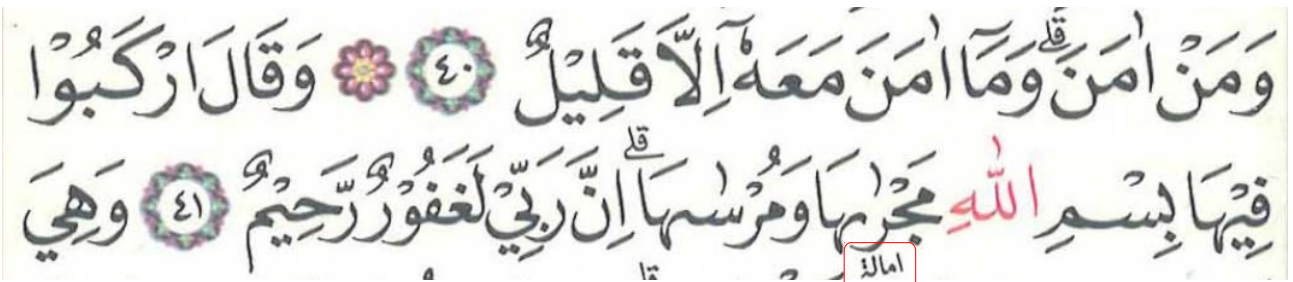 وَمَنْ اٰمَنَ ۗ وَمَآ اٰمَنَ مَعَهٗٓ اِلَّا قَلِيْلٌ ٤٠ وَقَالَ ارْكَبُوْا
فِيْهَا بِسْمِ اللّٰهِ مَجْرٰىهَا وَمُرْسٰىهَا ۗ اِنَّ رَبِّيْ لَغَفُوْرٌ رَّحِيْمٌ ٤١ وَهِيَ
امالة